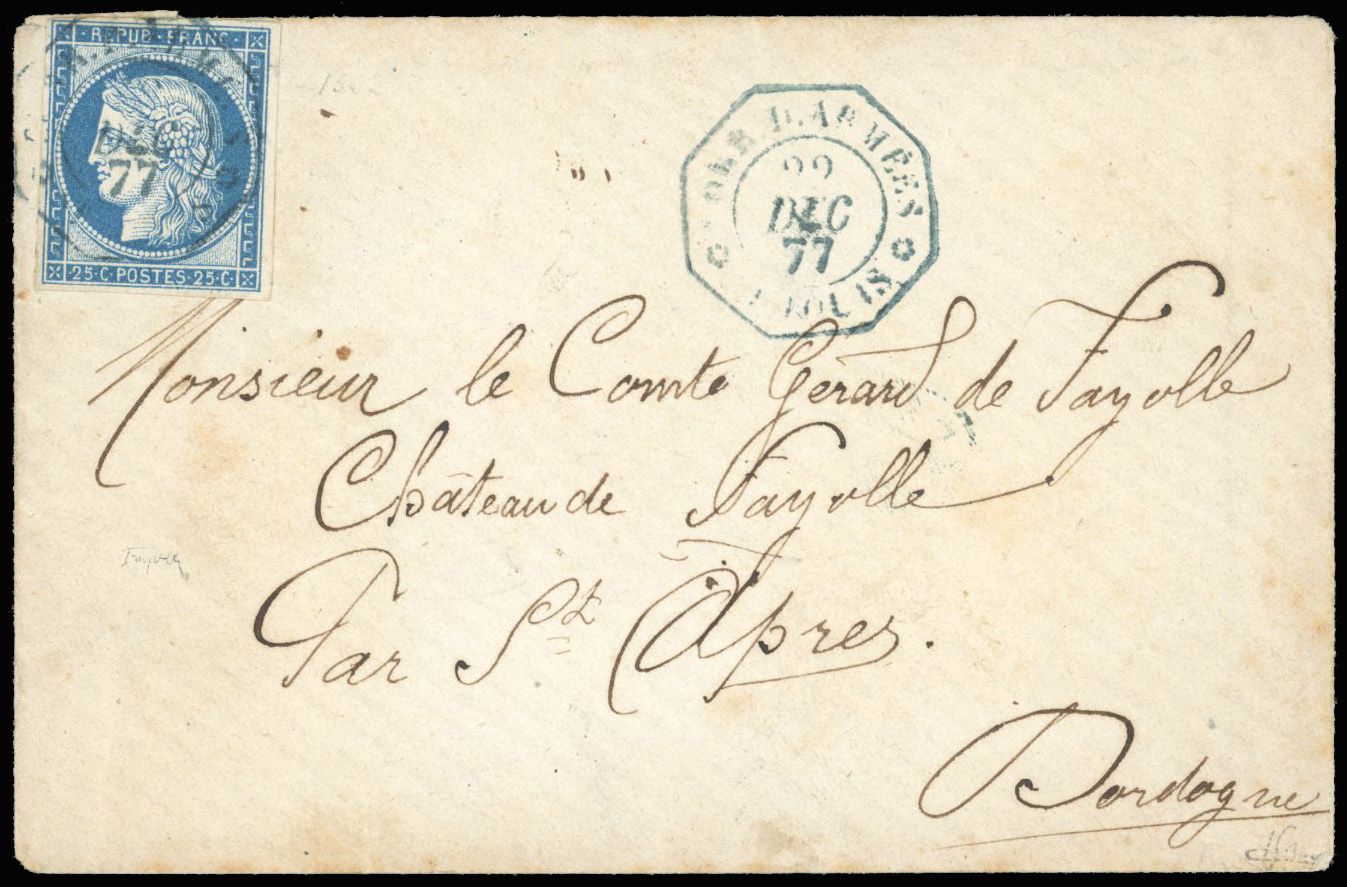 REPUB·FRANC·
DEC
77
·25·C·POSTES·25·C·
COR. D. ARMÉES
22
DEC
77
Monsieur le Comte Gérard de Fayolle
Château de Fayolle
Par St Apres.
Dordogne